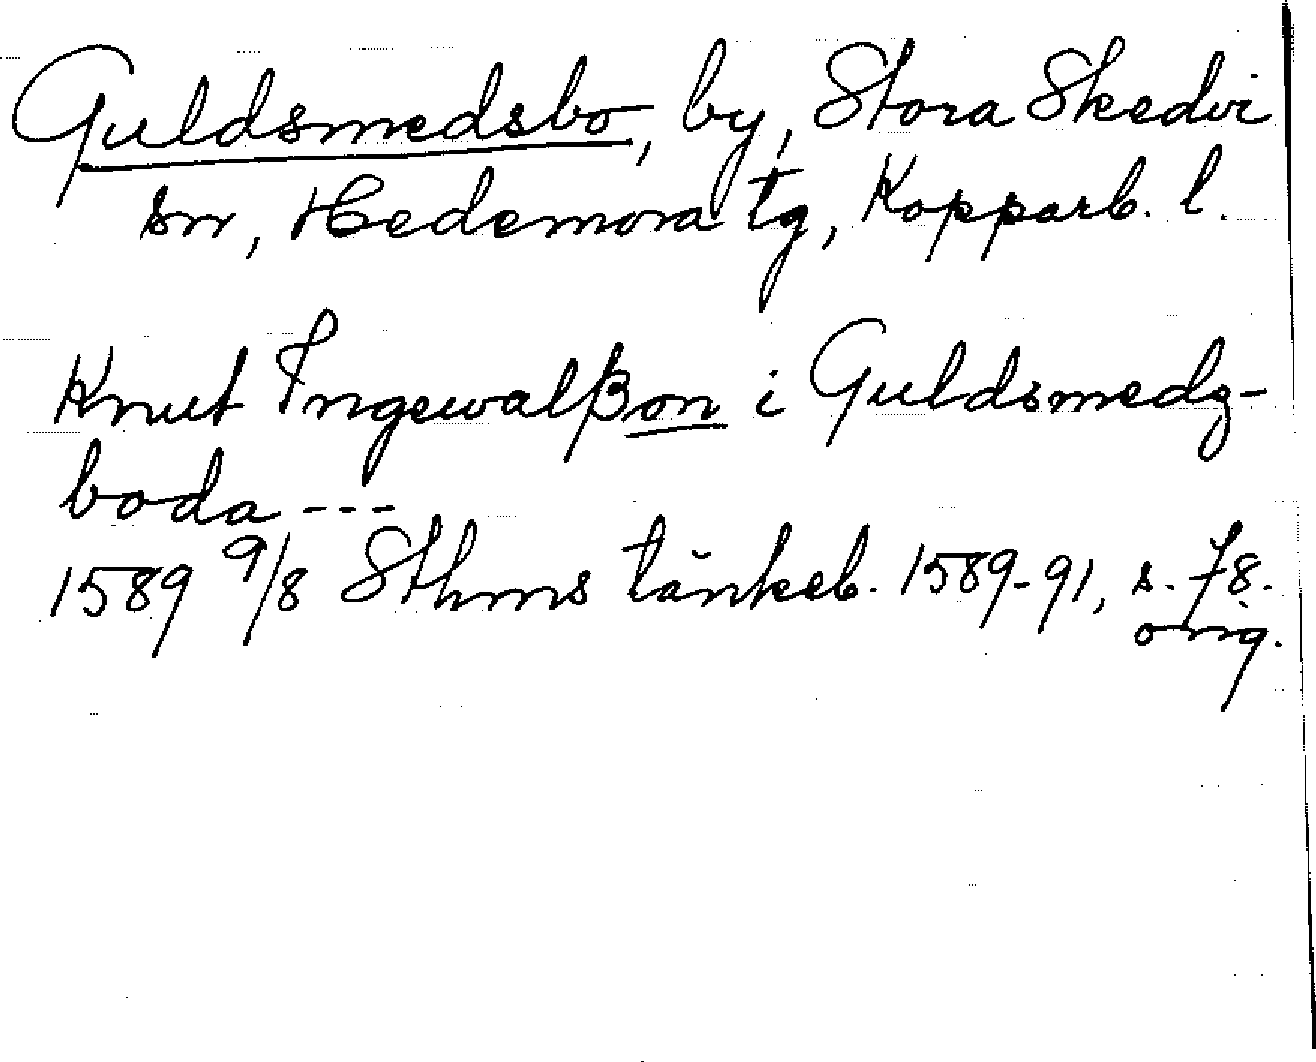 Guldsmedsbo, by, Stora Skedvi
sn, Hedemora tg, Kopparb. l.
Knut Ingewalßon i Guldsmedz-
boda ---
1589 9/8 Sthms tänkeb. 1589-91, s. 78.
orig.